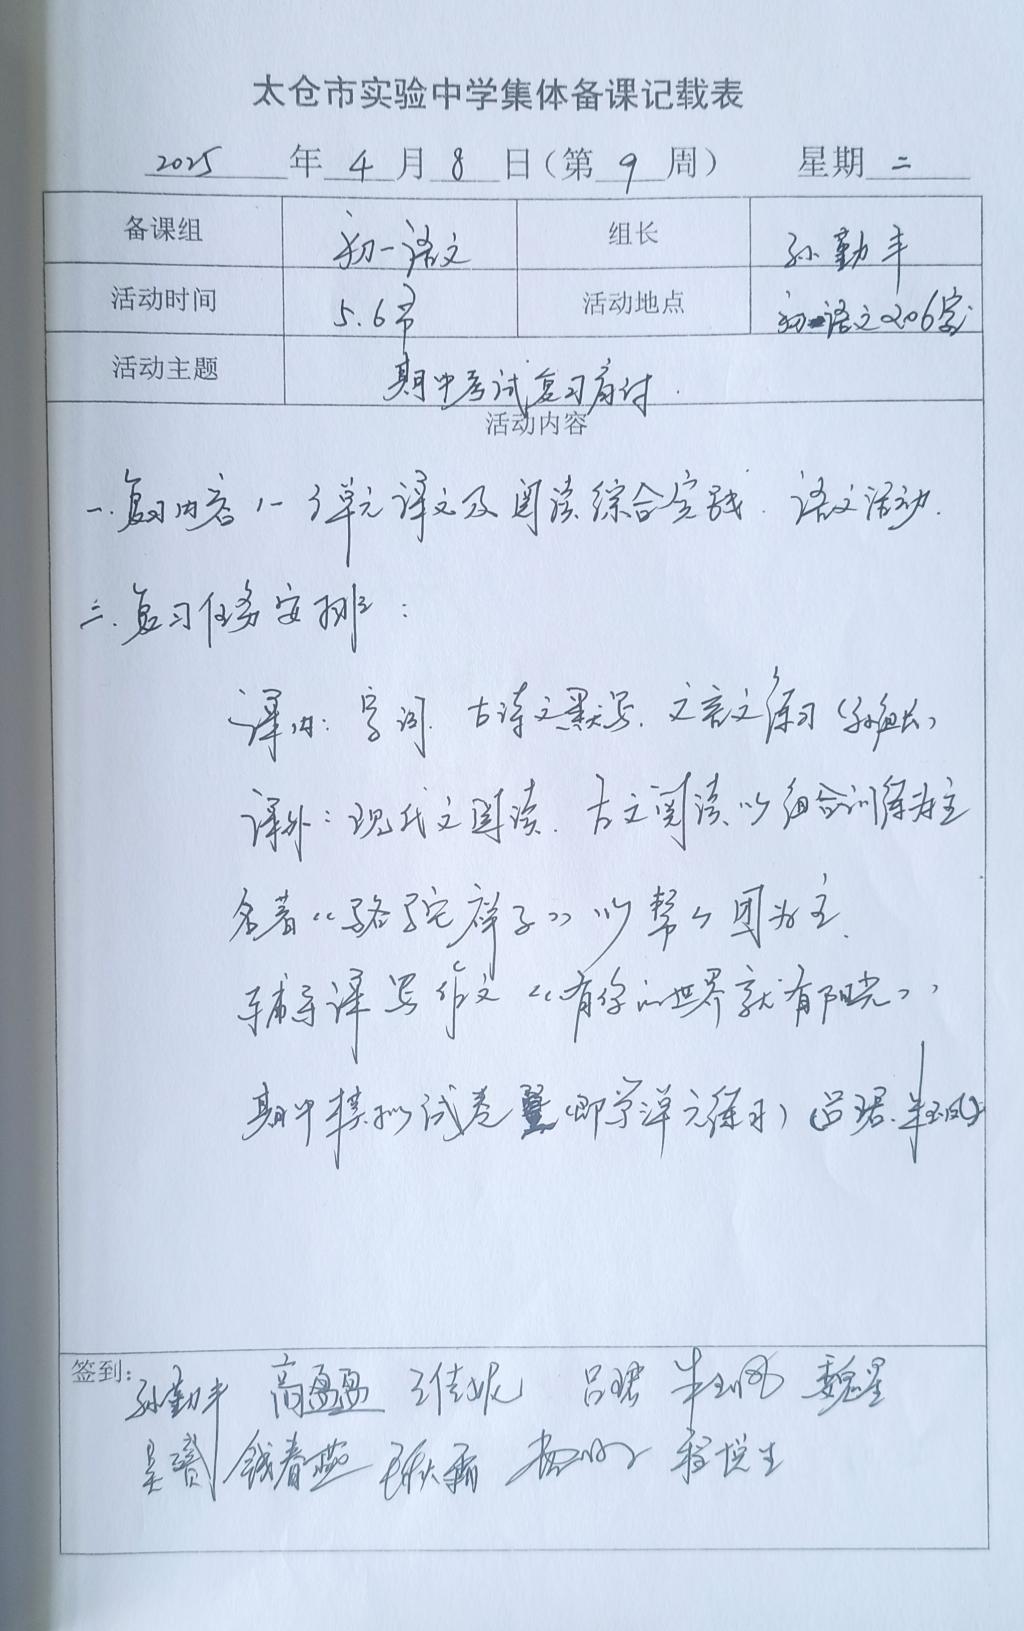 太仓市实验中学集体备课记载表
2025 年 4 月 8 日（第 9 周） 星期 二
备课组 初一语文 组长 孙勤丰
活动时间 5.6节 活动地点 初一语文206室
活动主题 期中考试复习商讨.
活动内容
一.复习内容 1- 3单元课文及阅读综合实践. 语文活动.
二.复习任务安排：
课内：字词. 古诗文默写. 文言文练习（孙组长）
课外：现代文阅读. 古文阅读以组合训练为主
名著《骆驼祥子》以帮扶团为主.
辅导课写作文《有你的世界就有阳光》
期中模拟试卷（即学单元练习）（吕珺.朱玉凤）
签到: 孙勤丰 高盈盈 王佳妮 吕珺 朱玉凤 魏星
吴 钱春燕 秋霜 杨 程悦生